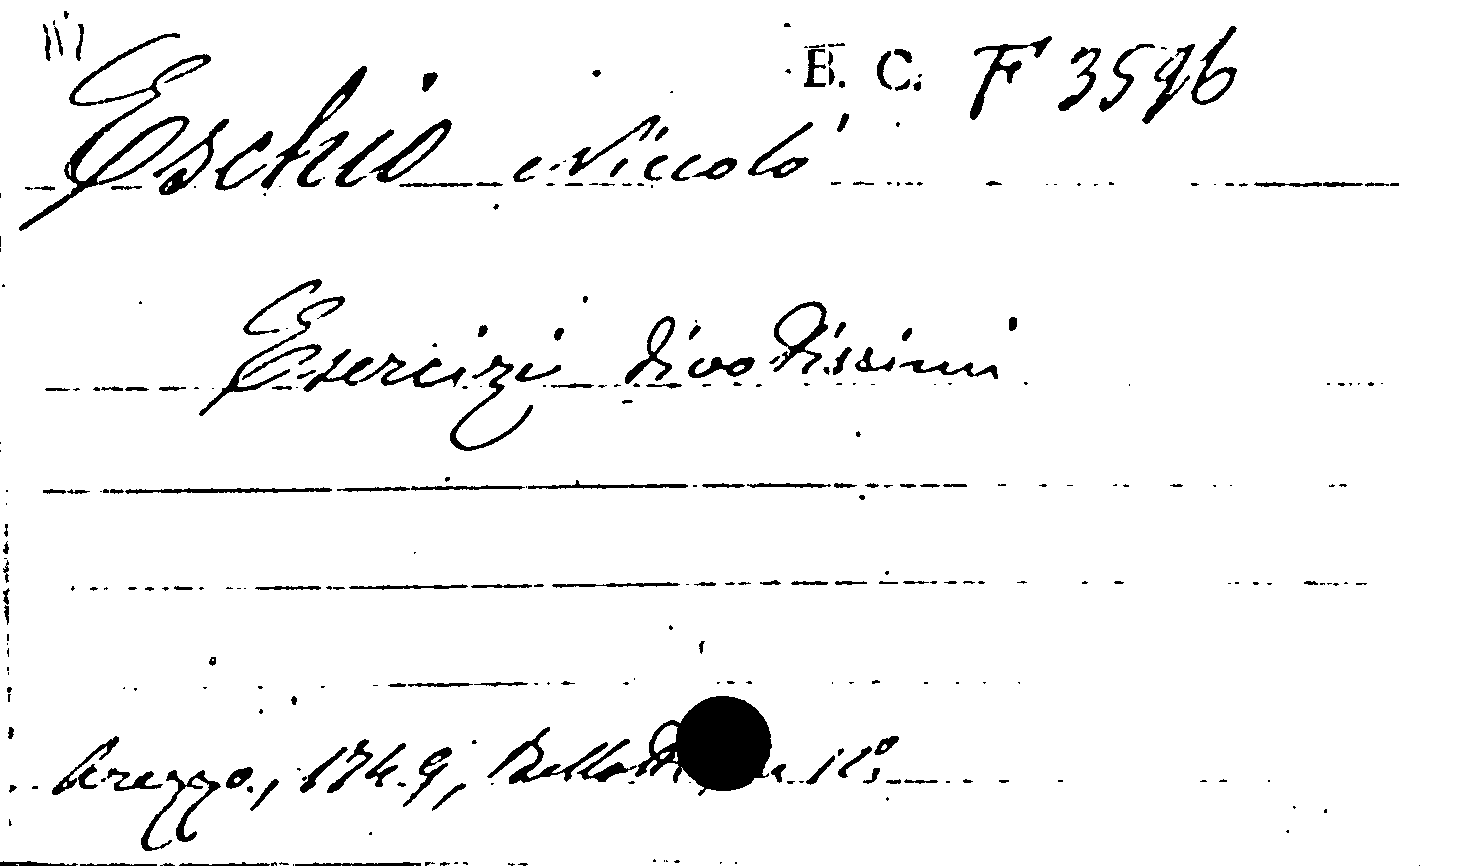 B. C. F 3596
Eschio Niccolò
Esercizi divotissimi
Arezzo, 1749, Bellotti